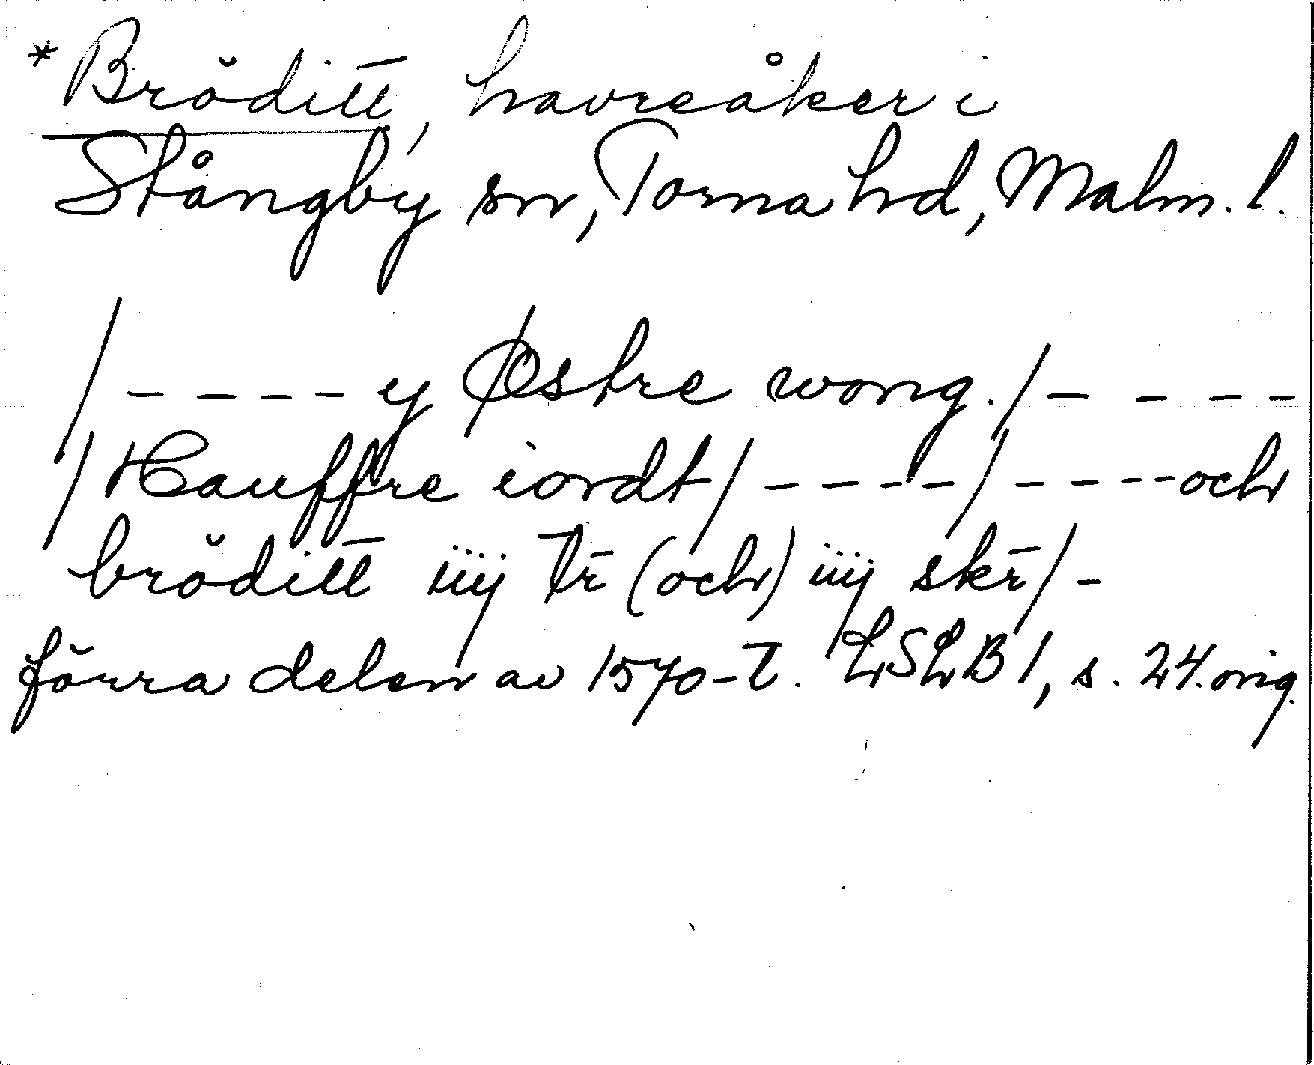 *Bröditt, havreåker i
Stångby sn, Torna hd, Malm. l.
/ - - - - y Østre wong. / - - - -
/ Hauffre iordt / - - - - / - - - - och
bröditt iiij Tr̄ (och) iiij skr̄ / -
förra delen av 1570-t. LSLB 1, s. 24. orig.